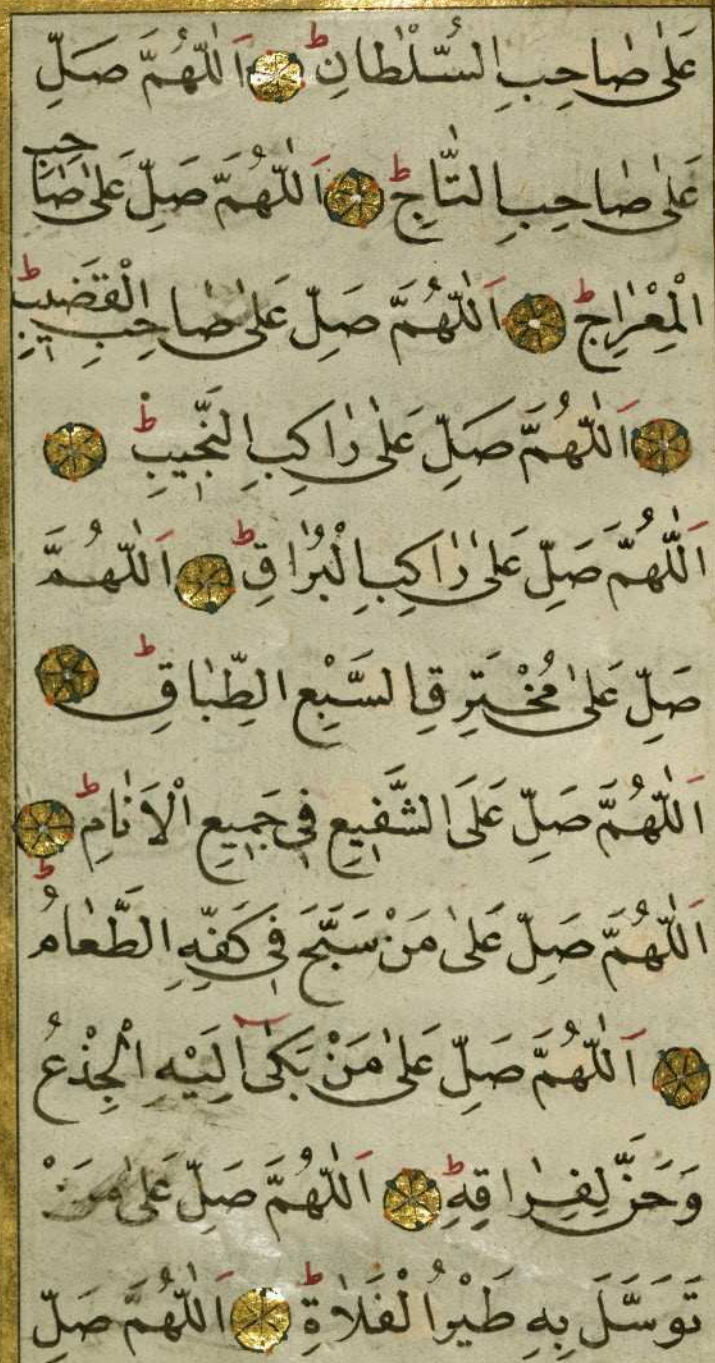 عَلٰى صَاحِبِ السُّلْطَانِ ط اَللّٰهُمَّ صَلِّ
عَلٰى صَاحِبِ التَّاجِ ط اَللّٰهُمَّ صَلِّ عَلٰى صَاحِبِ
الْمِعْرَاجِ ط اَللّٰهُمَّ صَلِّ عَلٰى صَاحِبِ الْقَضِيبِ ط
اَللّٰهُمَّ صَلِّ عَلٰى رَاكِبِ النَّجِيبِ ط
اَللّٰهُمَّ صَلِّ عَلٰى رَاكِبِ الْبُرَاقِ ط اَللّٰهُمَّ
صَلِّ عَلٰى مُخْتَرِقِ السَّبْعِ الطِّبَاقِ ط
اَللّٰهُمَّ صَلِّ عَلَى الشَّفِيعِ فِي جَمِيعِ الْاَنَامِ ط
اَللّٰهُمَّ صَلِّ عَلٰى مَنْ سَبَّحَ فِي كَفِّهِ الطَّعَامُ ط
اَللّٰهُمَّ صَلِّ عَلٰى مَنْ بَكٰى اِلَيْهِ الْجِذْعُ
وَحَنَّ لِفِرَاقِهِ ط اَللّٰهُمَّ صَلِّ عَلٰى مَنْ
تَوَسَّلَ بِهِ طَيْرُ الْفَلَاةِ ط اَللّٰهُمَّ صَلِّ